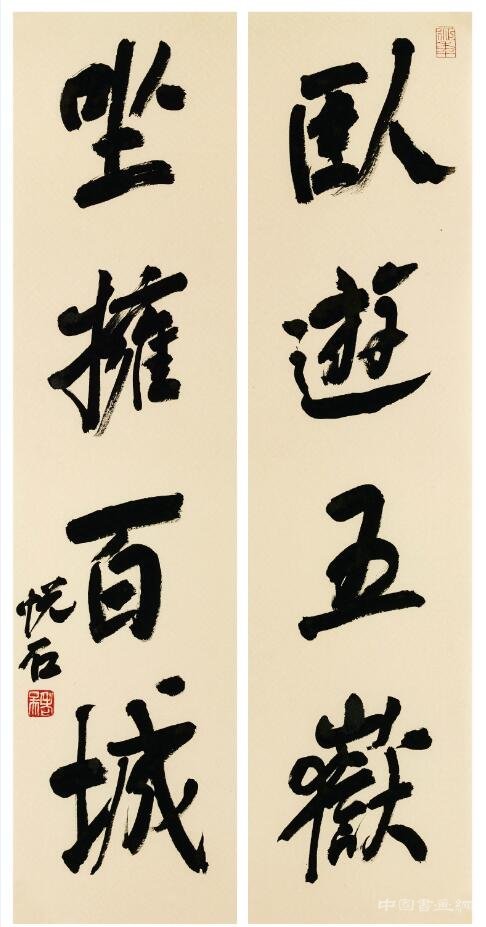 臥遊五嶽
坐擁百城
悦石
中国書画網